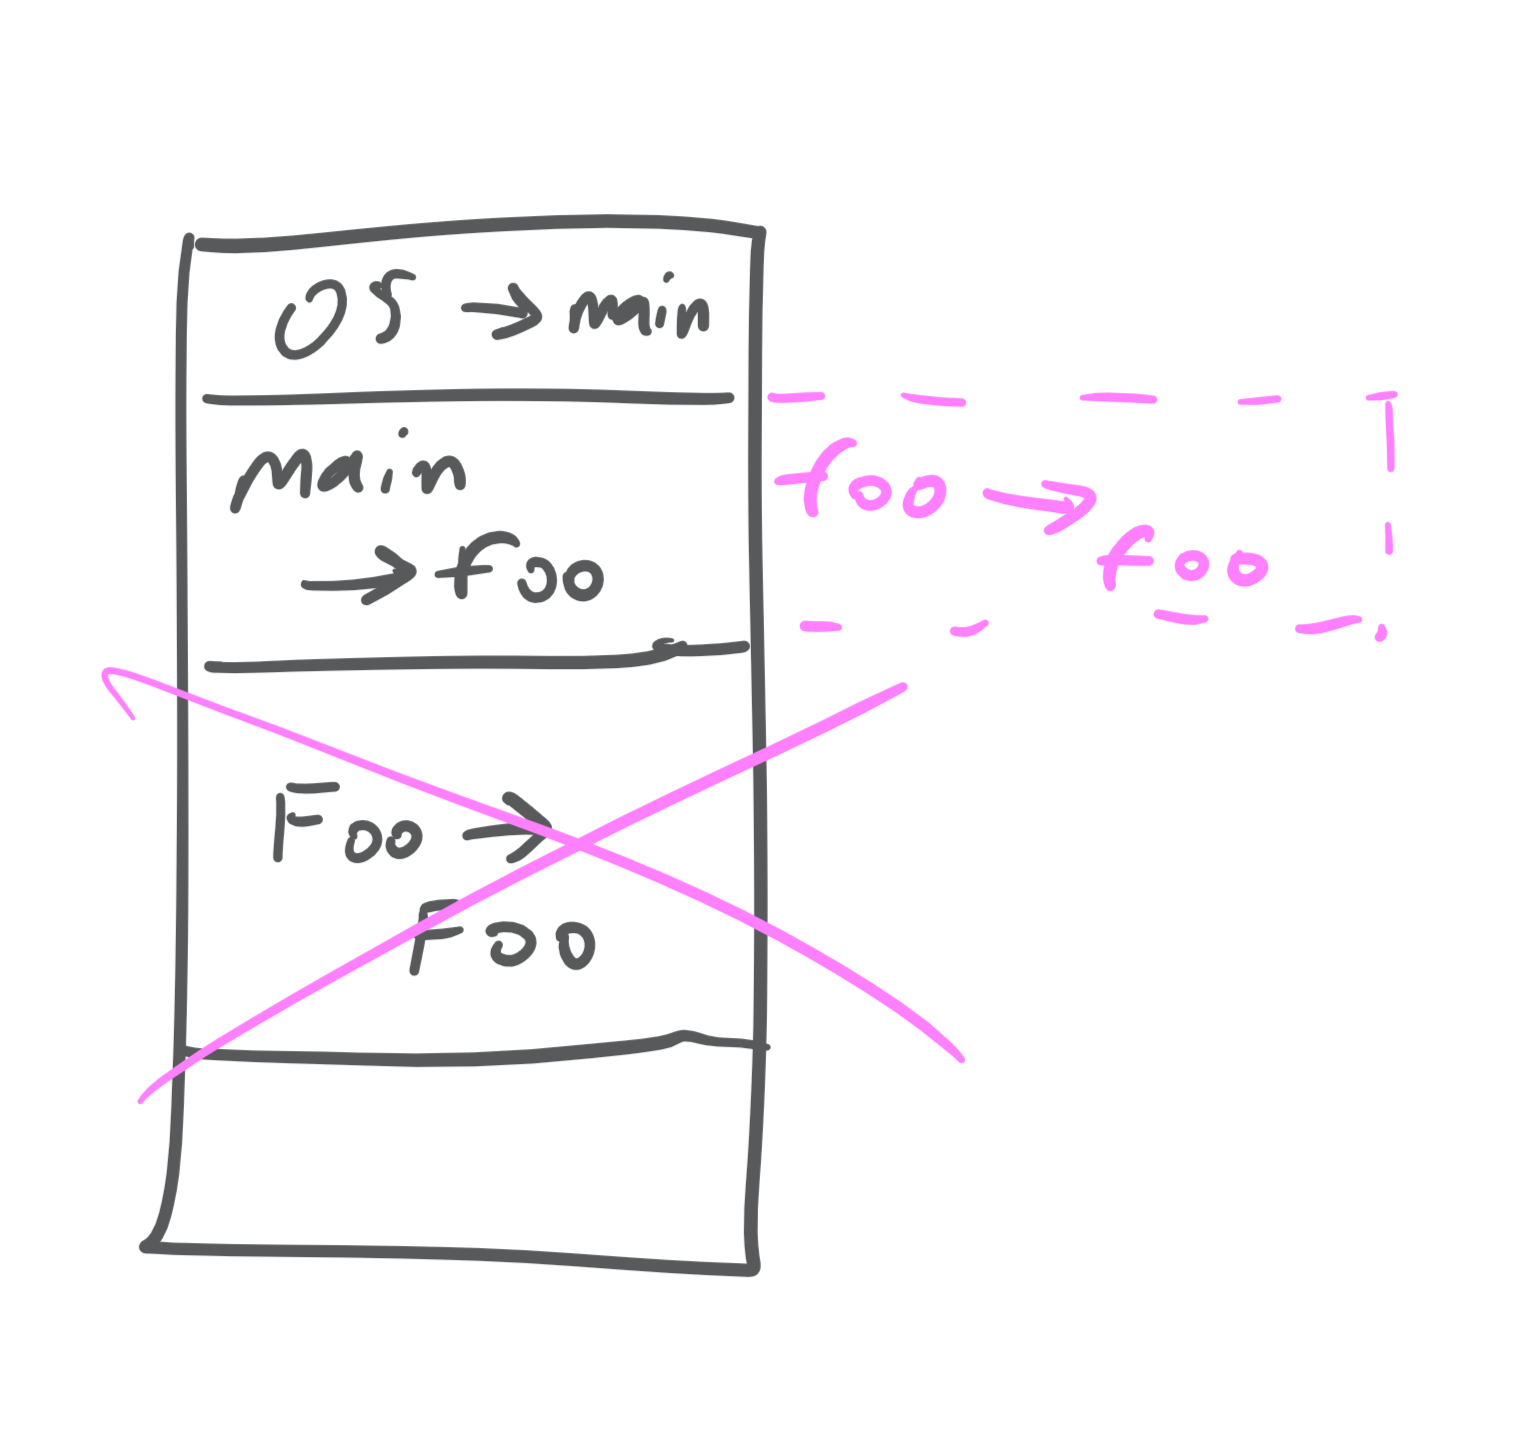 OS → main
Main
→ foo
foo →
foo
Foo →
Foo